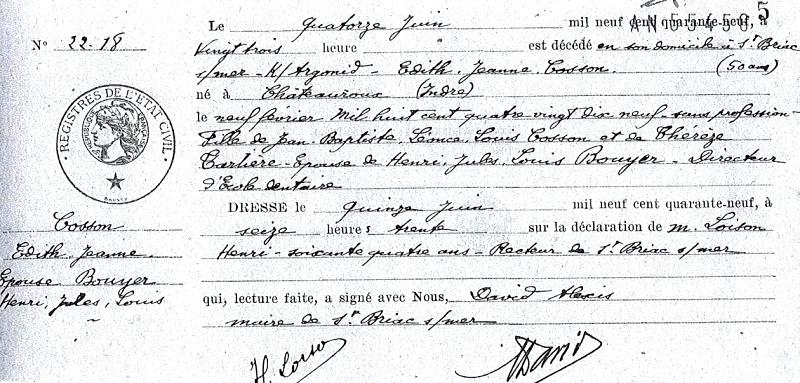 Le quatorze Juin mil neuf cent quarante-neuf, à
N° 22-18
vingt trois heure est décédé en son domicile à St Briac
s/mer - K/Argonid - Edith, Jeanne, Cosson. (50 ans)
né à Châteauroux (Indre)
le neuf février Mil huit cent quatre vingt dix neuf - sans profession -
Fille de Jean-Baptiste, Léonce, Louis Cosson et de Thérèze
Carlière - Epouse de Henri, Jules, Louis Bouyer - Directeur
d'Ecole dentaire
REGISTRES DE L'ETAT CIVIL
DRESSÉ le quinze Juin mil neuf cent quarante-neuf, à
seize heures trente sur la déclaration de M. Loison
Henri - soixante quatre ans - Recteur de St Briac s/mer
Cosson
Edith Jeanne
Epouse Bouyer
Henri, Jules, Louis
qui, lecture faite, a signé avec Nous, David Alexis
maire de St Briac s/mer
H. Loison
David